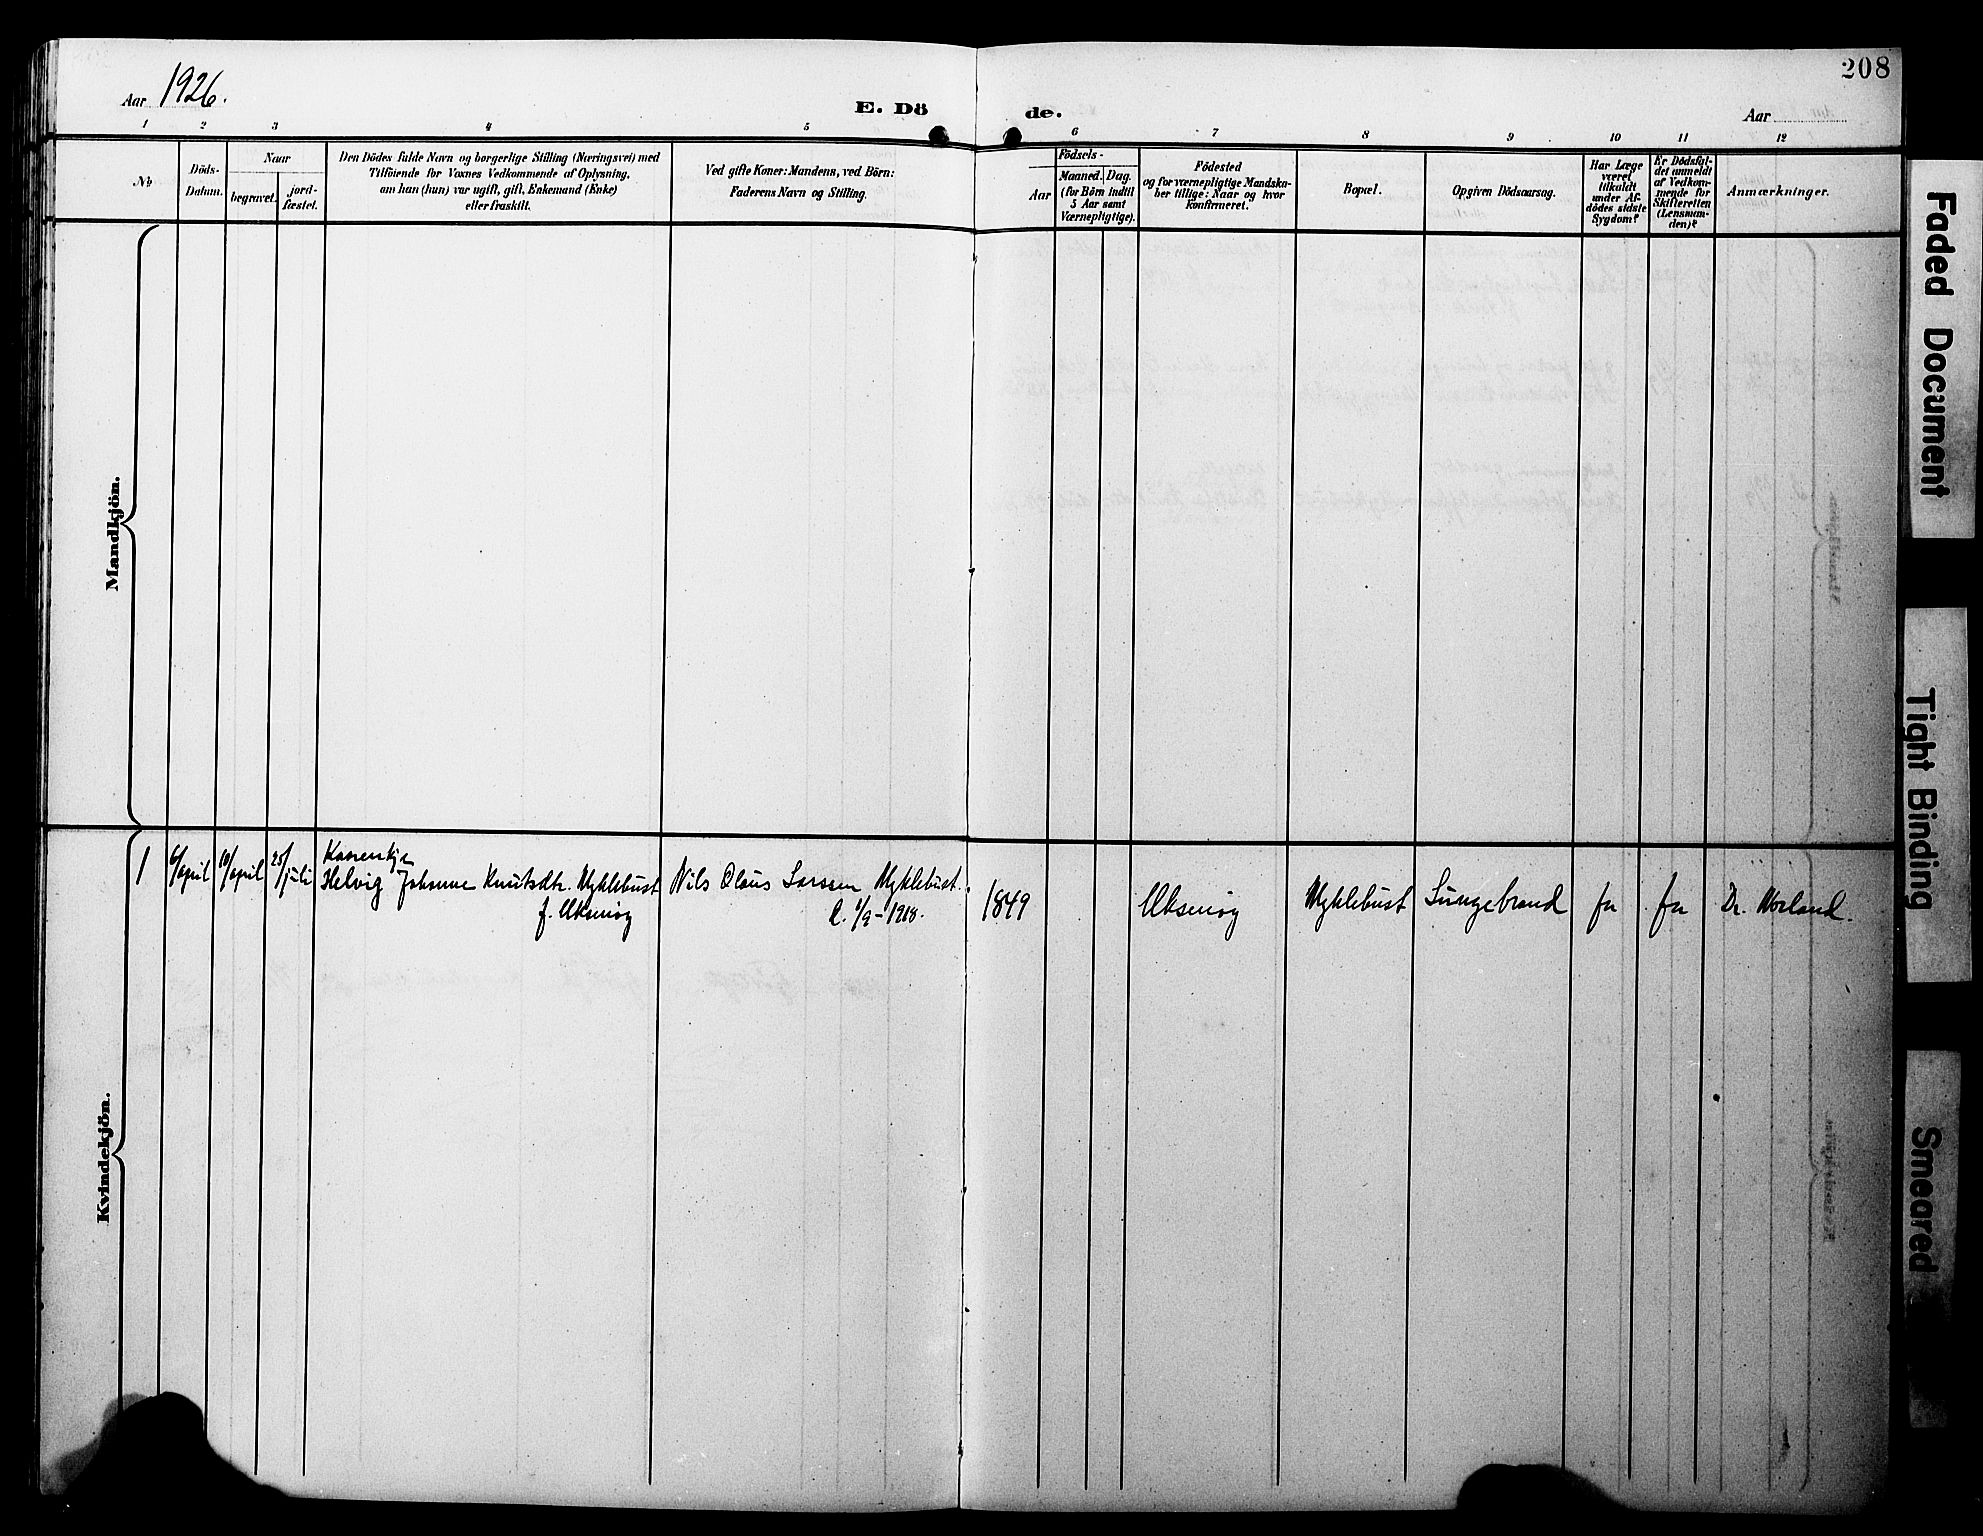 208
Aar 1926.
E. Dö
de.
Aar
1 2 3 4 5 6 7 8 9 10 11 12
No
Döds-
Datum.
Naar
begravet.
jord-
fæstet.
Den Dödes fulde Navn og borgerlige Stilling (Næringsvei) med
Tilföiende for Voxnes Vedkommende af Oplysning.
om han (hun) var ugift, gift, Enkemand (Enke)
eller fraskilt.
Ved gifte Koner: Mandens, ved Börn:
Faderens Navn og Stilling.
Födsels-
Aar
Maaned. Dag.
(for Börn indtil
5 Aar samt
Værnepligtige).
Födested
og for værnepligtige Mandska-
ber tillige: Naar og hvor
konfirmeret.
Bopæl.
Opgiven Dödsaarsag.
Har Læge
været
tilkaldt
under Af-
dödes sidste
Sygdom?
Er Dödsfal-
det anmeldt
af Vedkom-
mende for
Skifteretten
(Lensman-
den)?
Anmærkninger.
Mandkjön.
Kvindekjön.
1
6/april
10/april
25/juli
Helvig Johanne Knutsdtr. Myklebust
f. Uksnöy
Nils Olaus Larssen Myklebust.
1/9-1918.
1849
Uksnöy
Myklebust
Lungebrand
ja
ja
Dr. Morland.
Faded Document
Tight Binding
Smeared